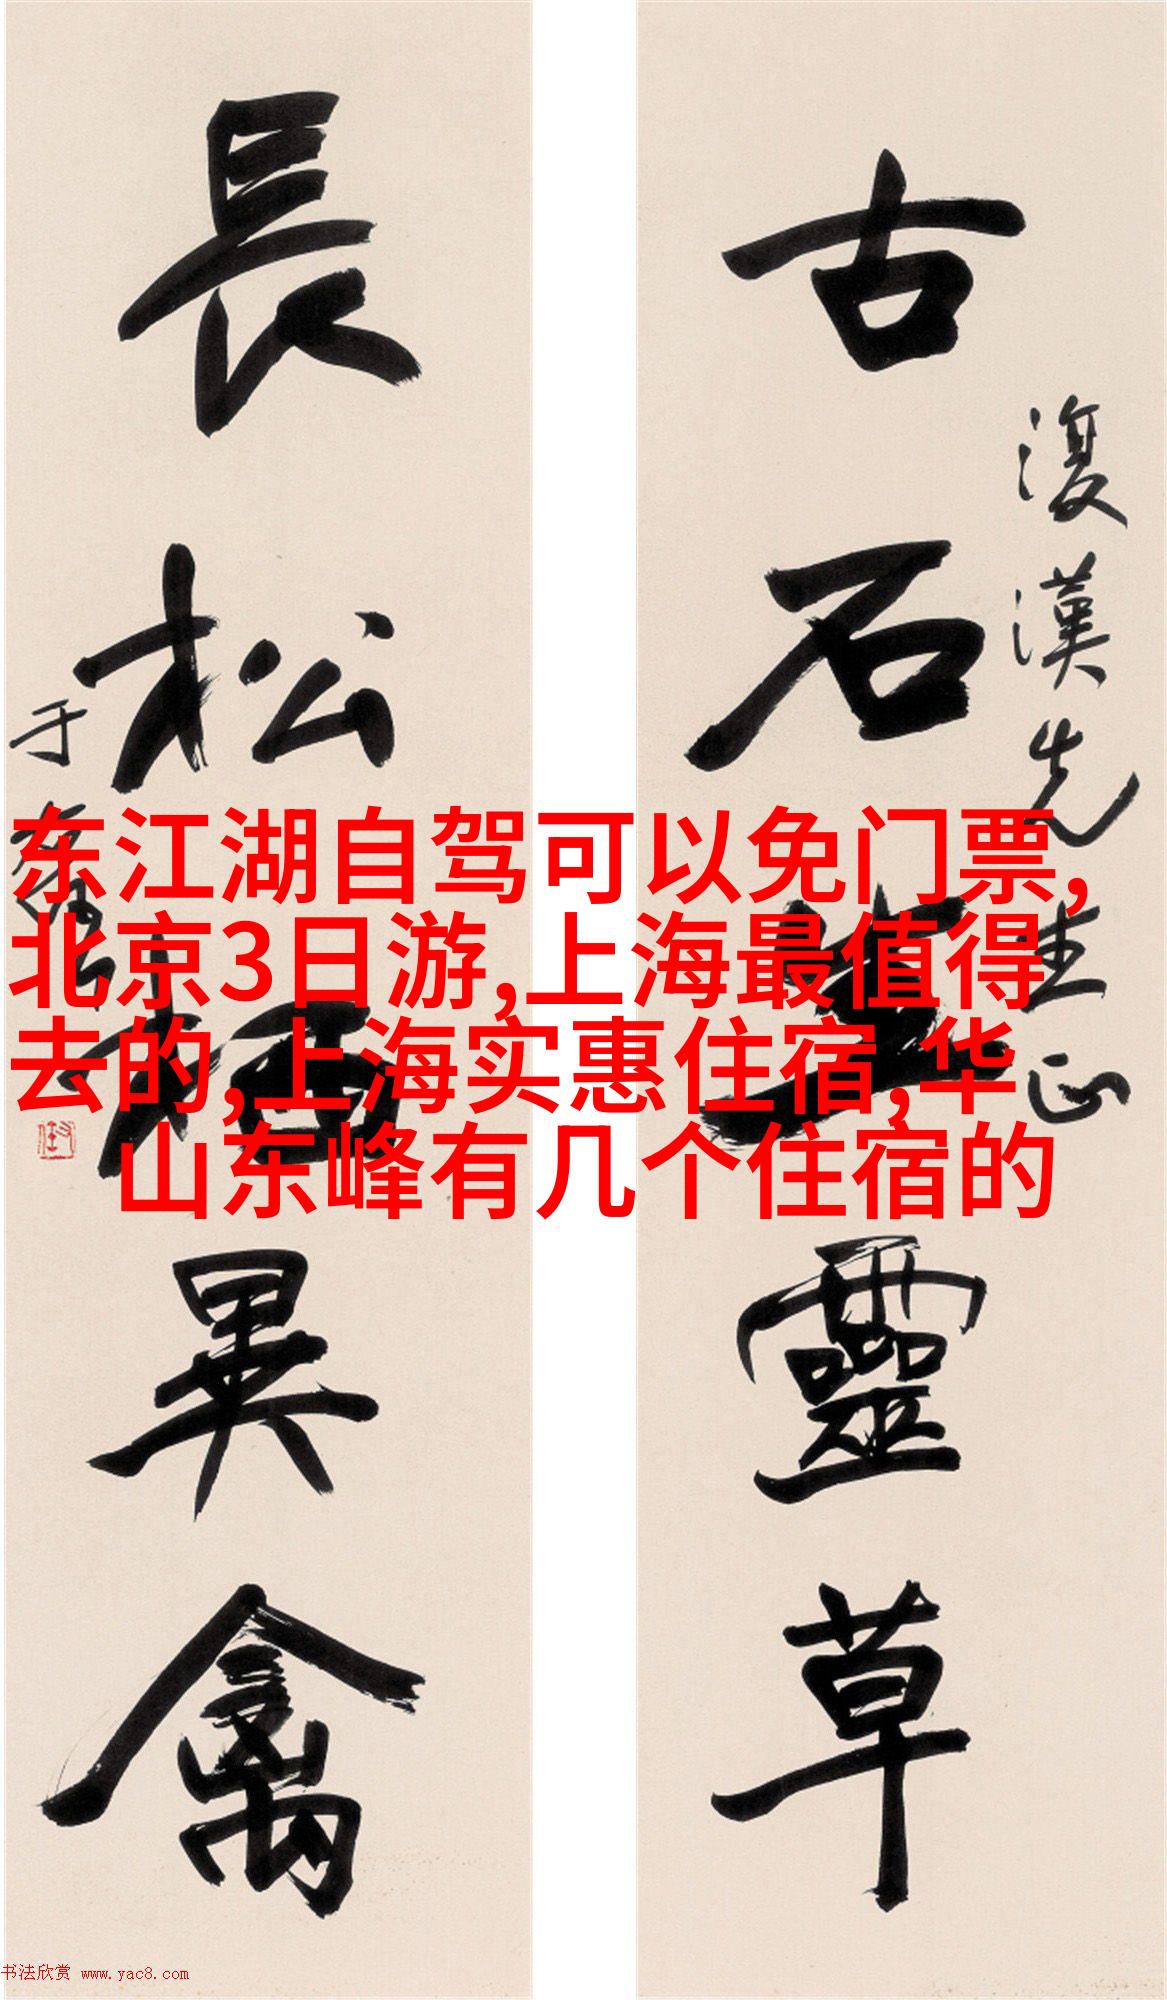 古石生靈草
復漢先生正
長松栖異禽
于右任
东江湖自驾可以免门票,
北京3日游,上海最值得
去的,上海实惠住宿,华
山东峰有几个住宿的
书法欣赏 www.yac8.com